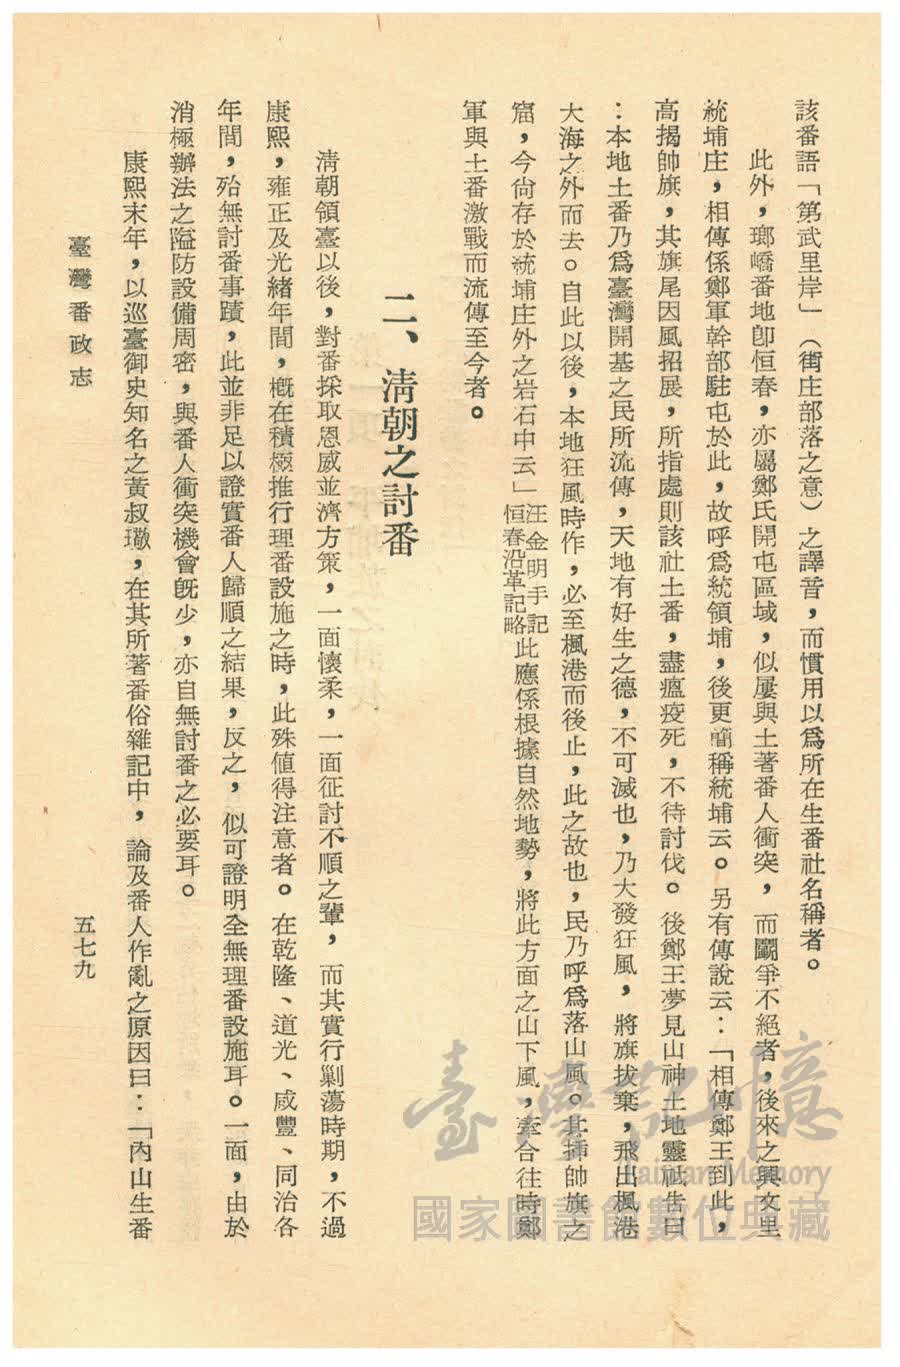 該番語「第武里岸」（街庄部落之意）之譯音，而慣用以爲所在生番社名稱者。
此外，瑯嶠番地卽恒春，亦屬鄭氏開屯區域，似屢與土著番人衝突，而鬭爭不絕者，後來之興文里
統埔庄，相傳係鄭軍幹部駐屯於此，故呼爲統領埔，後更簡稱統埔云。另有傳說云：「相傳鄭王到此，
高揭帥旗，其旗尾因風招展，所指處則該社土番，盡瘟疫死，不待討伐。後鄭王夢見山神土地靈祗告曰
：本地土番乃爲臺灣開基之民所流傳，天地有好生之德，不可滅也，乃大發狂風，將旗拔棄，飛出楓港
大海之外而去。自此以後，本地狂風時作，必至楓港而後止，此之故也，民乃呼爲落山風。其揷帥旗之
窟，今尙存於統埔庄外之岩石中云」汪金明手記恒春沿革記略此應係根據自然地勢，將此方面之山下風，牽合往時鄭
軍與土番激戰而流傳至今者。
二、淸朝之討番
淸朝領臺以後，對番採取恩威並濟方策，一面懷柔，一面征討不順之輩，而其實行剿蕩時期，不過
康熙，雍正及光緒年間，槪在積極推行理番設施之時，此殊値得注意者。在乾隆、道光、咸豐、同治各
年間，殆無討番事蹟，此並非足以證實番人歸順之結果，反之，似可證明全無理番設施耳。一面，由於
消極辦法之隘防設備周密，與番人衝突機會旣少，亦自無討番之必要耳。
康熙末年，以巡臺御史知名之黃叔璥，在其所著番俗雜記中，論及番人作亂之原因曰：「內山生番
臺灣番政志
五七九
臺灣記憶
Taiwan Memory
國家圖書館數位典藏